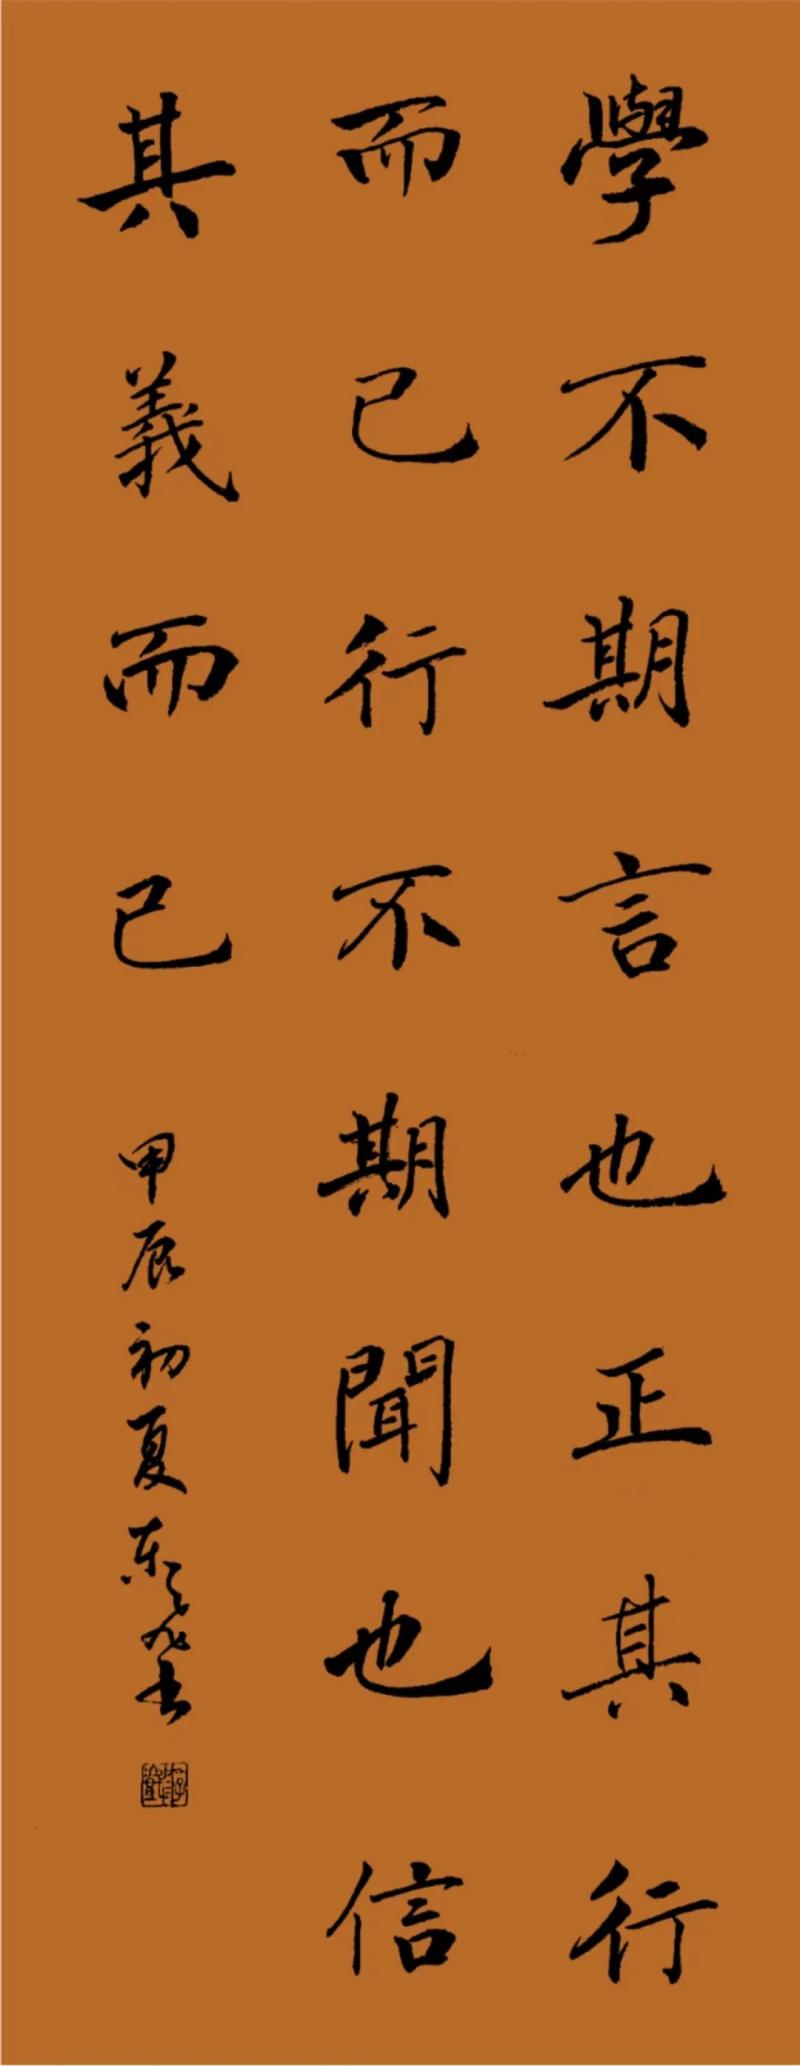 學不期言也正其行
而已行不期聞也信
其義而已
甲辰初夏